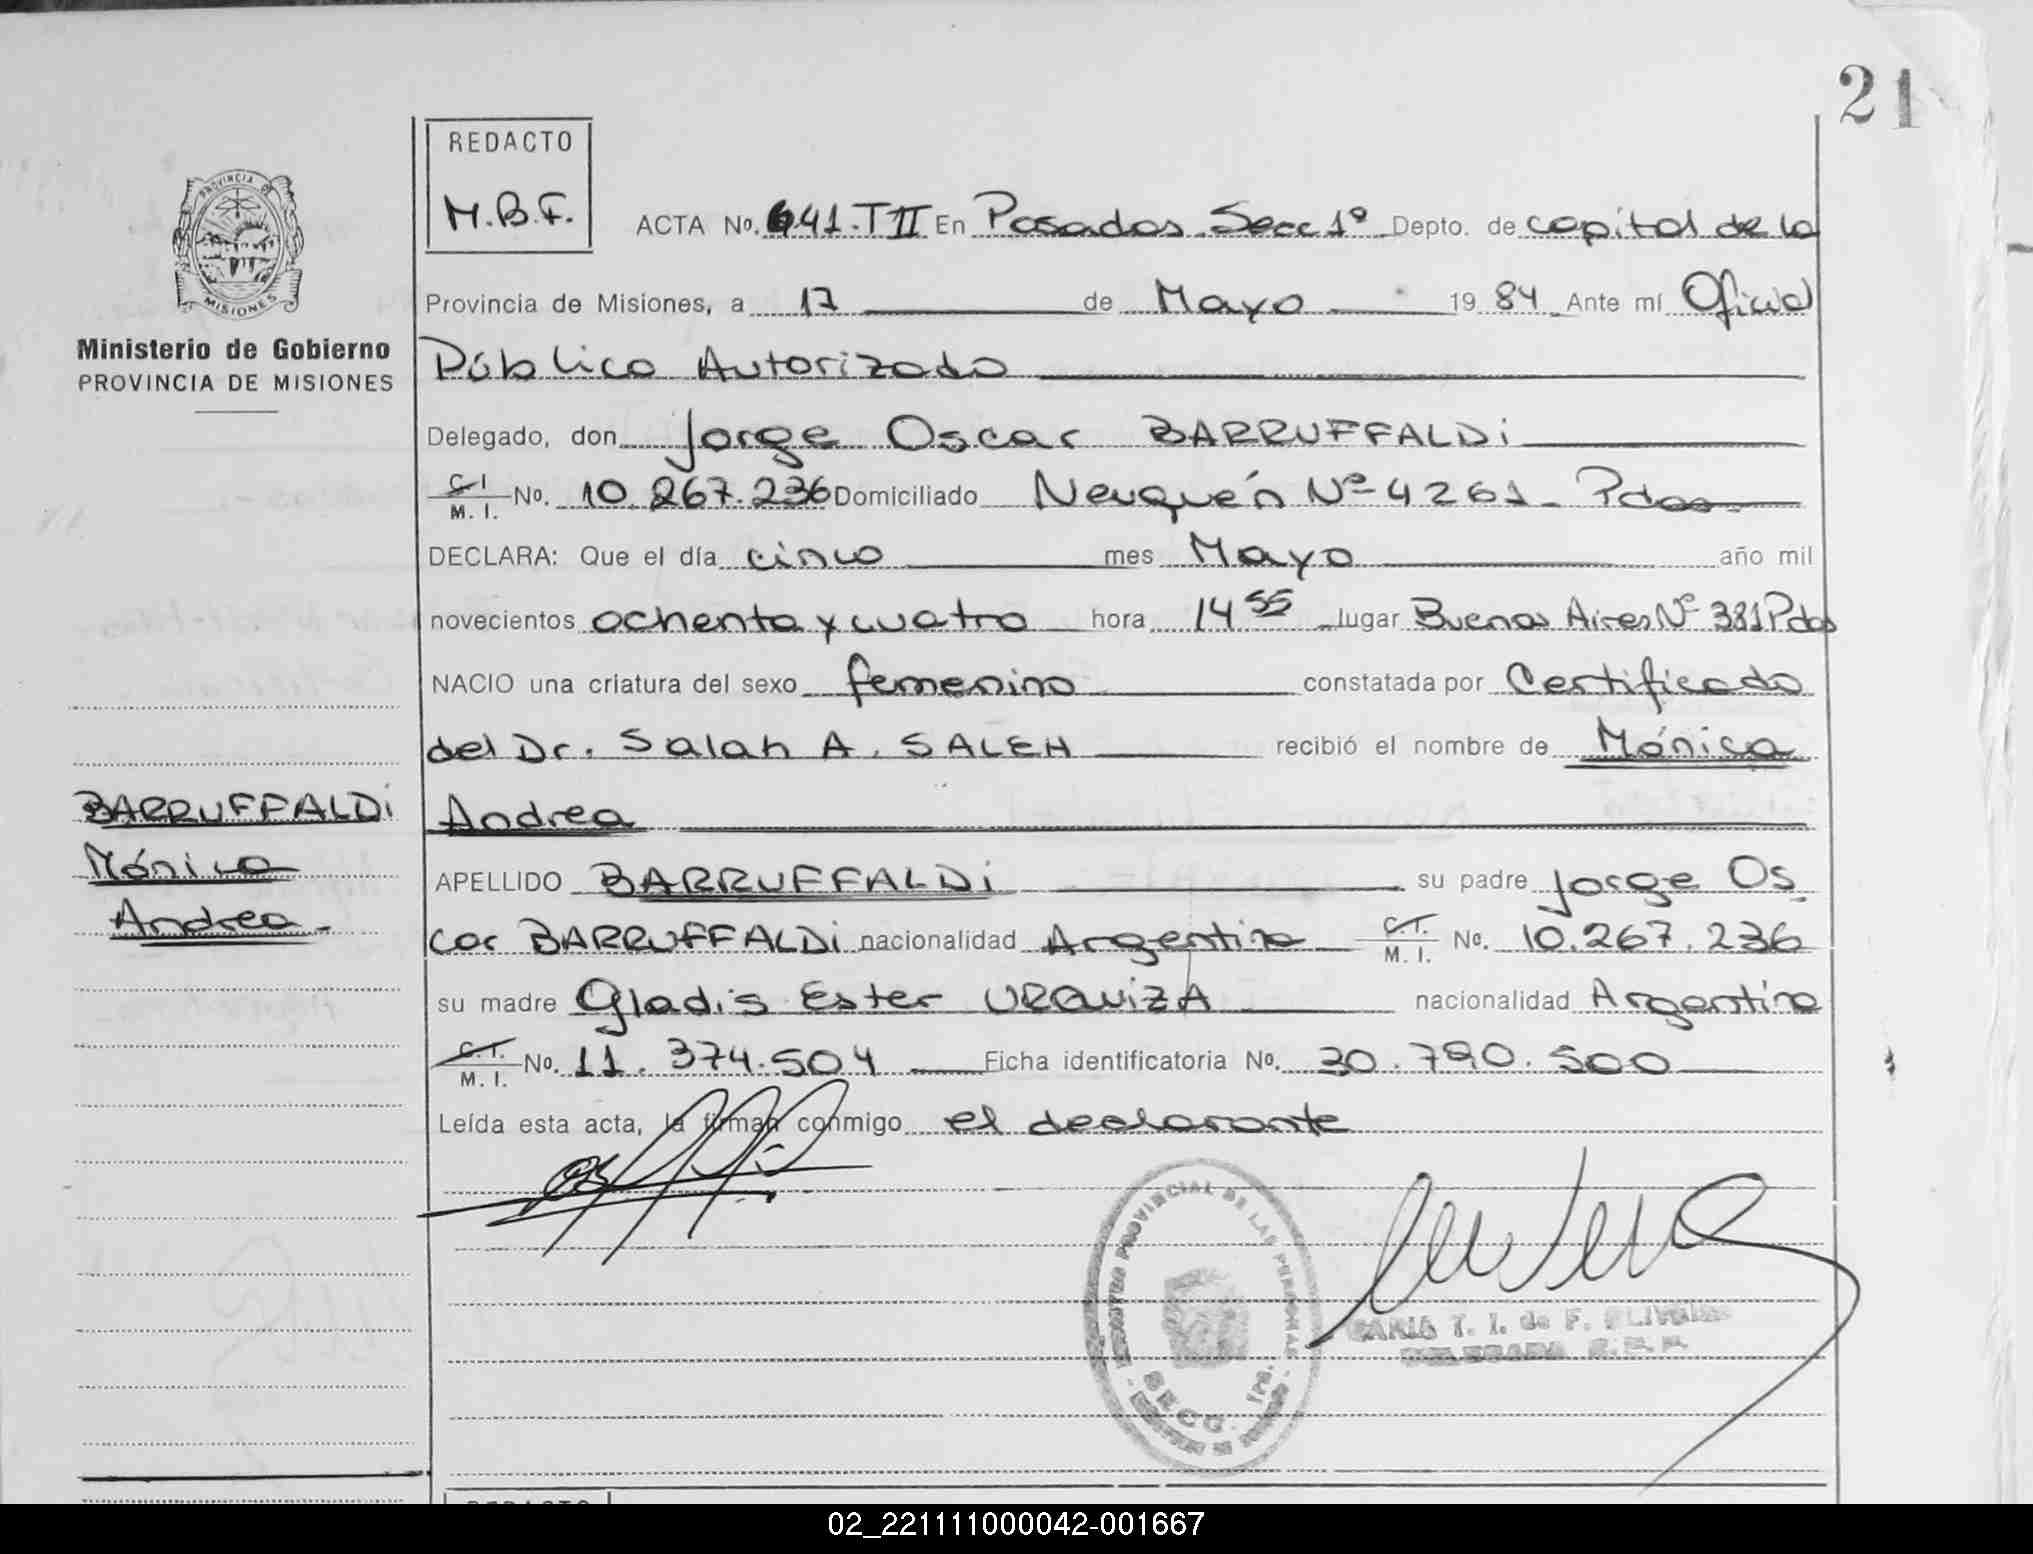 21
REDACTO
M.B.F.
PROVINCIA DE
MISIONES
Ministerio de Gobierno
PROVINCIA DE MISIONES
ACTA No. 641.TII En Posadas Secc 1º Depto. de capital de la
Provincia de Misiones, a 17 de Mayo 1984 Ante mí Oficial
Público Autorizado
Delegado, don Jorge Oscar BARRUFFALDi
C.I M.I. No. 10.267.236 Domiciliado Neuquén Nº 4261 - Pdas
DECLARA: Que el día cinco mes Mayo año mil
novecientos ochenta y cuatro hora 14 55 lugar Buenos Aires Nº 381 Pdas
NACIO una criatura del sexo femenino constatada por Certificado
del Dr. Salah A. SALEH recibió el nombre de Mónica
Andrea
BARRUFFALDi
Mónica
Andrea.-
APELLIDO BARRUFFALDi su padre Jorge Os
car BARRUFFALDi nacionalidad Argentina C.I. M.I. No. 10.267.236
su madre Gladis Ester URQUiZA nacionalidad Argentina
C.I. M.I. No. 11.374.504 Ficha identificatoria No. 30.790.500
Leída esta acta, la firman conmigo el declarante
PROVINCIAL DE LAS PERSONAS
SECC. 1ra.
T. I. de F.
REDACTO
02_221111000042-001667